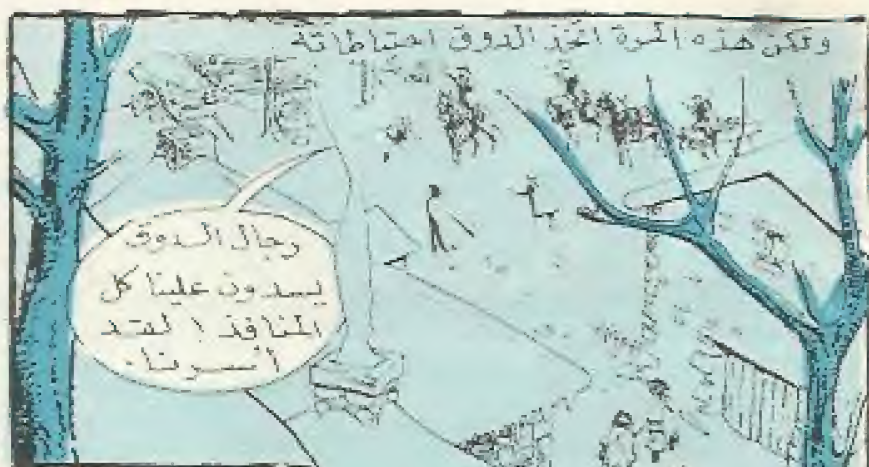 ولكن هذه المرة اتخذ الدوق احتياطاته
رجال الدوق
يسدون علينا كل
المنافذ ! لقد
أسرنا .